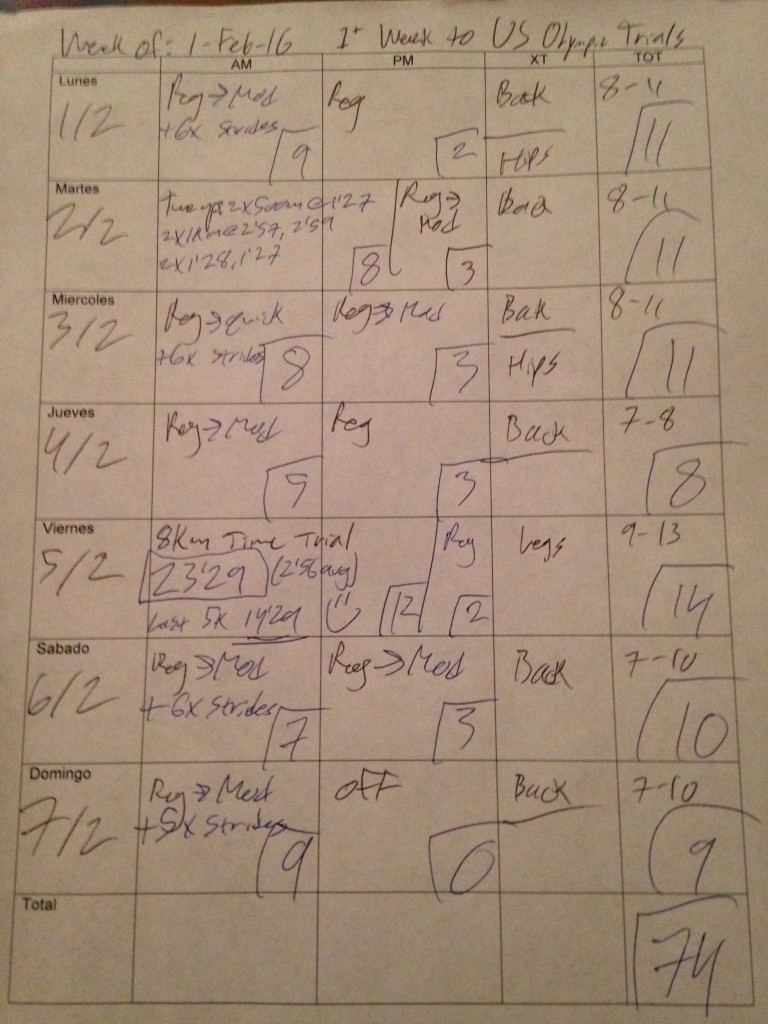 Week of: 1-Feb-16 1+ Week to US Olympic Trials
AM PM XT TOT
Lunes
1/2
Reg→Mod
+6x Strides
9
Reg
2
Back
Hips
8-11
11
Martes
2/2
2x500m@1'27
2x1Km@2'57, 2'59
2x1'28, 1'27
8
Reg→
Mod
3
Back
8-11
11
Miercoles
3/2
Reg→quick
+6x Strides
8
Reg→Mod
3
Back
Hips
8-11
11
Jueves
4/2
Reg→Mod
5
Reg
3
Back
7-8
8
Viernes
5/2
8Km Time Trial
23'29 (2'56avg)
Last 5K 14'29
12
Reg
2
Legs
9-13
14
Sabado
6/2
Reg→Mod
+6x Strides
7
Reg→Mod
3
Back
7-10
10
Domingo
7/2
Reg→Mod
+5x Strides
9
OFF
0
Back
7-10
9
Total
74